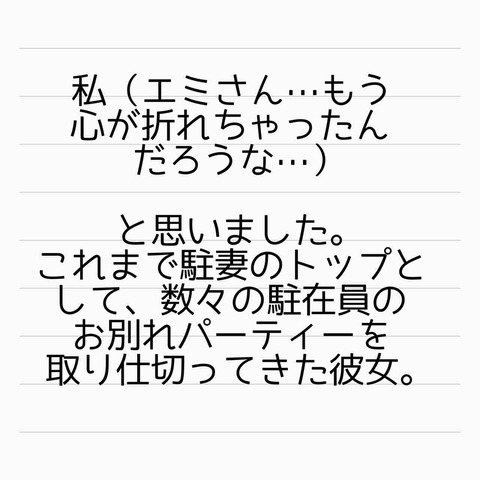 私（エミさん…もう
心が折れちゃったん
だろうな…）
と思いました。
これまで駐妻のトップと
して、数々の駐在員の
お別れパーティーを
取り仕切ってきた彼女。